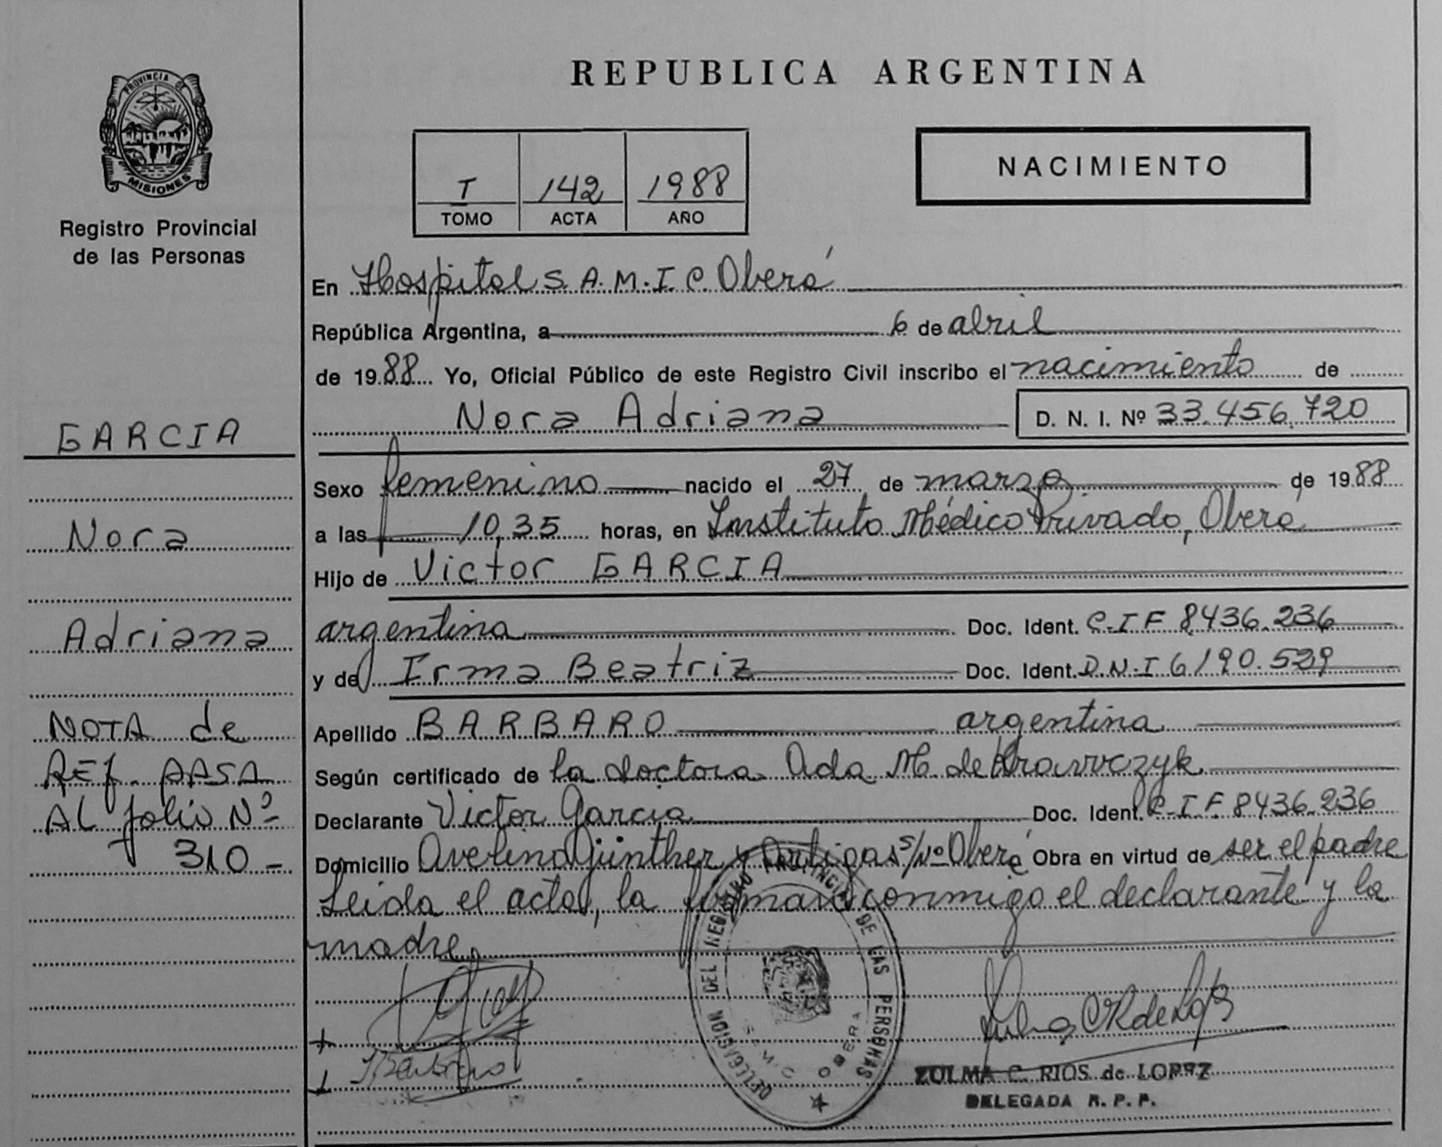 PROVINCIA DE
MISIONES
Registro Provincial
de las Personas
GARCIA
Nora
Adriana
NOTA de
REf. PASA
AL folio Nº
310-
REPUBLICA ARGENTINA
T 142 1988
TOMO ACTA AÑO
NACIMIENTO
En Hospital S.A.M.I.C. Oberá
República Argentina, a 6 de abril
de 1988 Yo, Oficial Público de este Registro Civil inscribo el nacimiento de
Nora Adriana D. N. I. Nº 33.456.720
Sexo femenino nacido el 27 de marzo de 1988
a las 10,35 horas, en Instituto Médico Privado, Oberá
Hijo de Victor GARCIA
argentina Doc. Ident. C.I.F 8436.236
y de Irma Beatriz Doc. Ident. D.N.I 6190.529
Apellido BARBARO argentina
Según certificado de la doctora Ada M. de Krawczyk
Declarante Victor Garcia Doc. Ident. C.I.F. 8436.236
Domicilio Avelino Günther y Artigas s/Nº Oberá Obra en virtud de ser el padre
Leida el acta, la firman conmigo el declarante y la
madre
DELEGACION DEL REGISTRO PROVINCIAL DE LAS PERSONAS
SAMIC OBERA
ZULMA C. RIOS de LOPEZ
DELEGADA R. P. P.